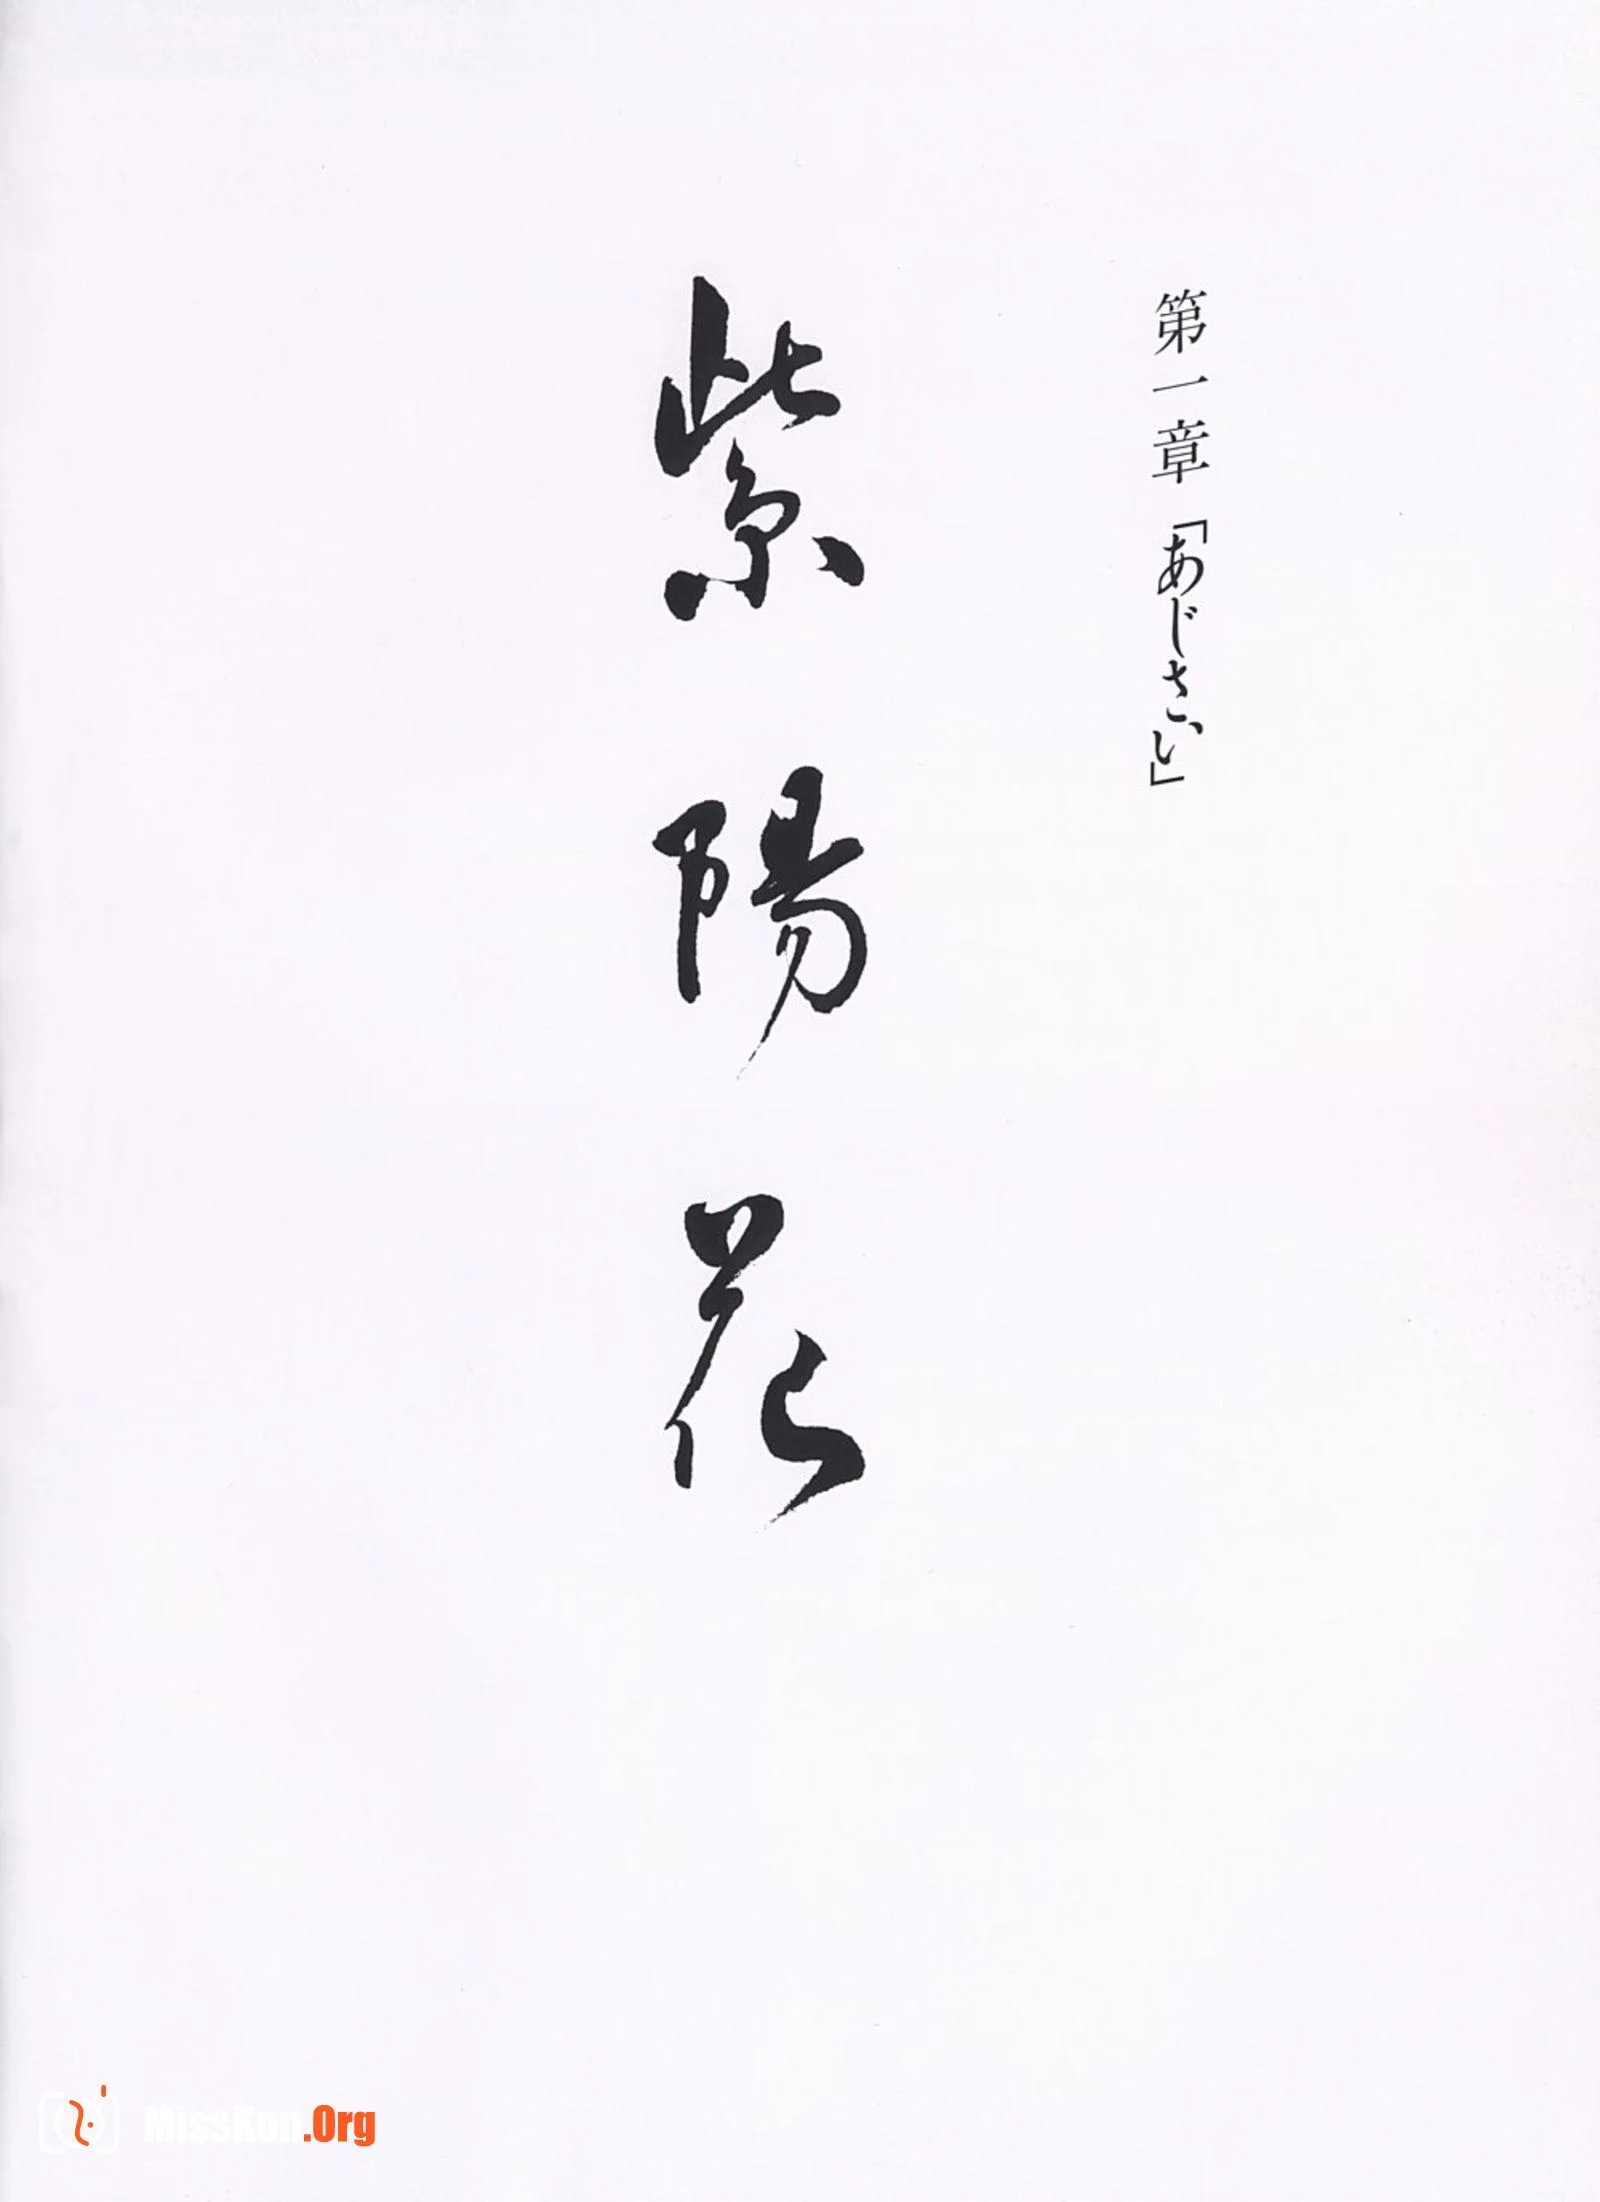 第一章「あじさい」
紫陽花
MissKon.Org